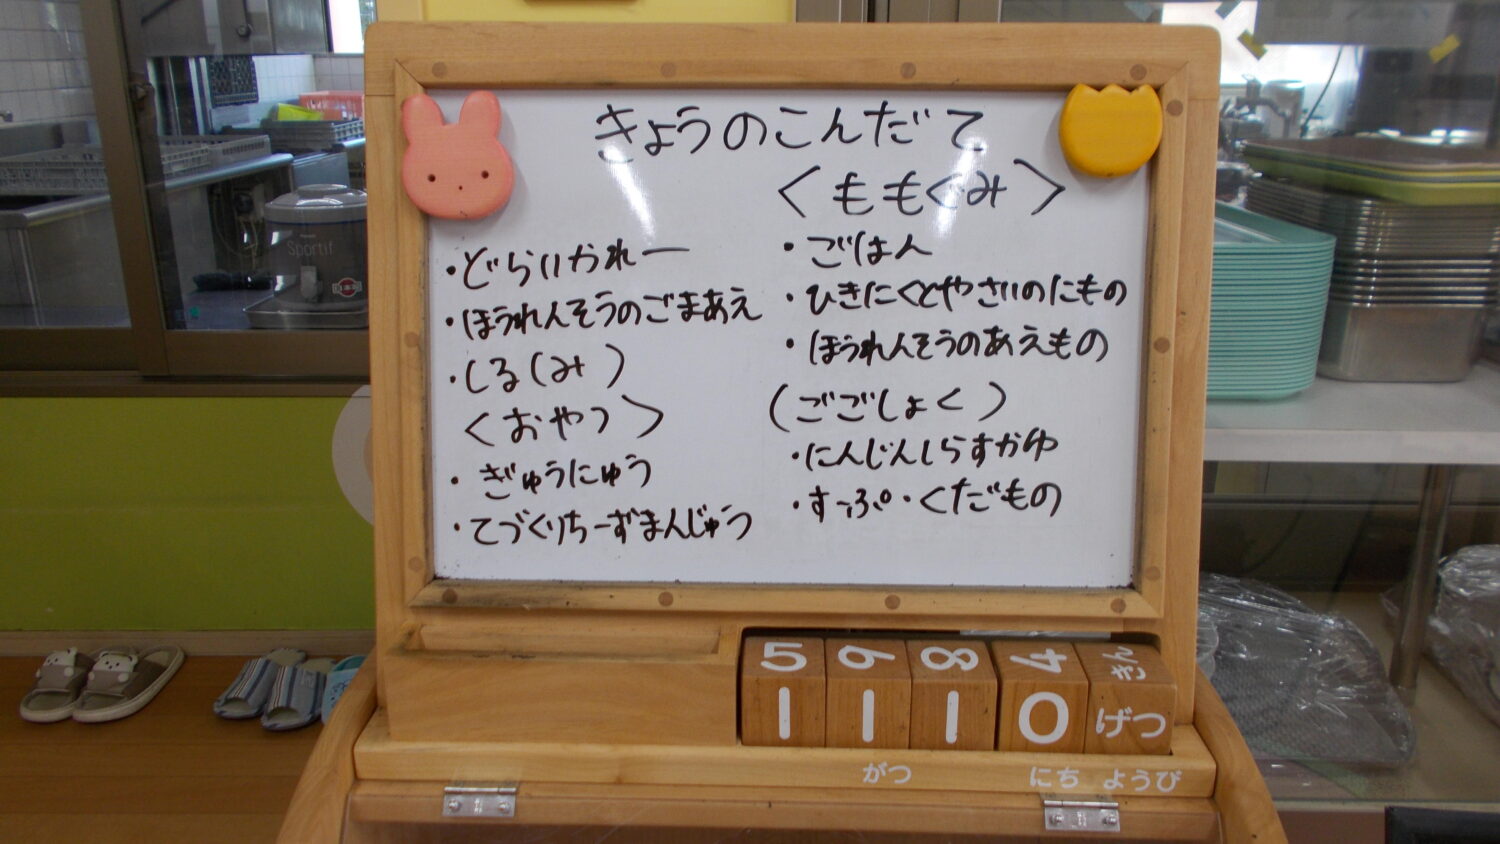 きょうのこんだて
・どらいかれー
・ほうれんそうのごまあえ
・しる(み)
<おやつ>
・ぎゅうにゅう
・てづくりちーずまんじゅう
<ももぐみ>
・ごはん
・ひきにくとやさいのにもの
・ほうれんそうのあえもの
(ごごしょく)
・にんじんしらすかゆ
・すーぷ・くだもの
5 9 8 4 きん
1 1 1 0 げつ
がつ にち ようび
Sportif